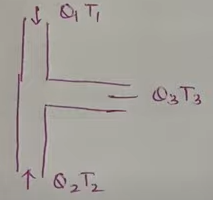 Q₁T₁
Q₃T₃
Q₂T₂